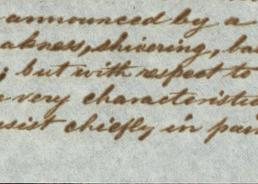 announced by a
akness, shivering, ba
but with respect to
very characteristic
sist chiefly in pain